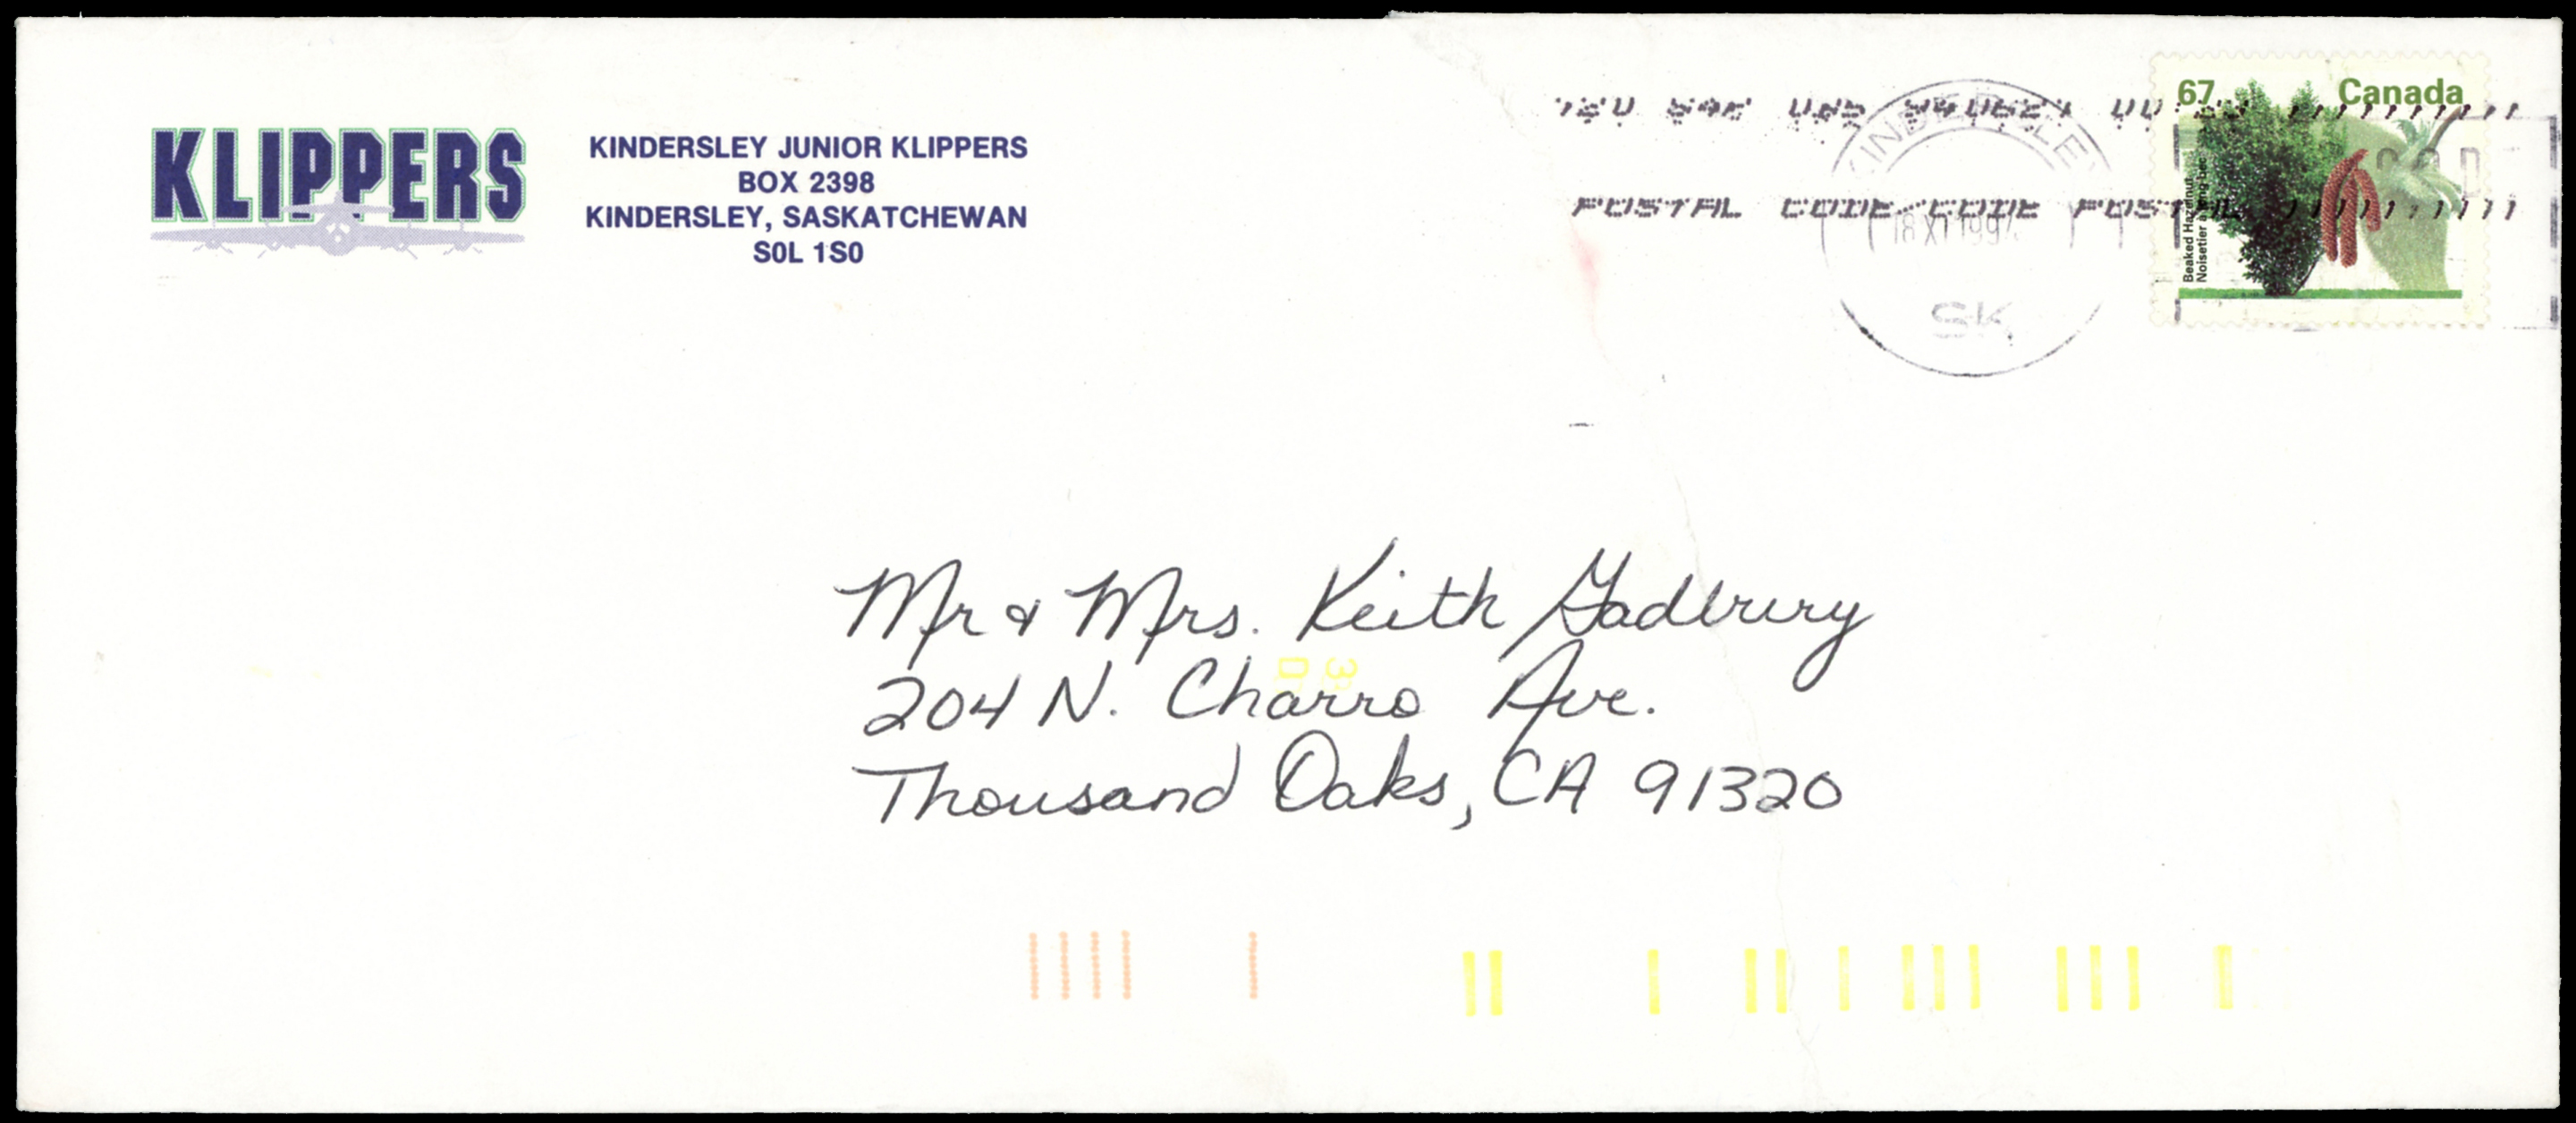 KLIPPERS
KINDERSLEY JUNIOR KLIPPERS
BOX 2398
KINDERSLEY, SASKATCHEWAN
S0L 1S0
67 Canada
Beaked Hazelnut
Noisetier à long bec
POSTAL CODE/CODE POSTAL
KINDERSLEY
18 XI 199
SK
Mr & Mrs. Keith Gadbury
204 N. Charro Ave.
Thousand Oaks, CA 91320